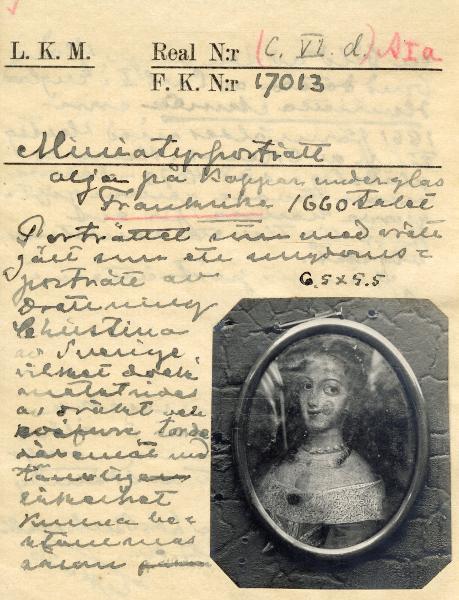 L. K. M. Real N:r (C. VI. d.) A I a
F. K. N:r 17013
Miniatyrporträtt
olja på koppar under glas
Frankrike 1660 talet
Porträttet som med orätt
gått som ett ungdoms-
porträtt av
drottning
Christina
av Sverige
vilket dock
motstrides
av dräkt och
coiffure torde
däremot med
säkerhet
kunna be-
stämmas
såsom
6.5 x 5.5